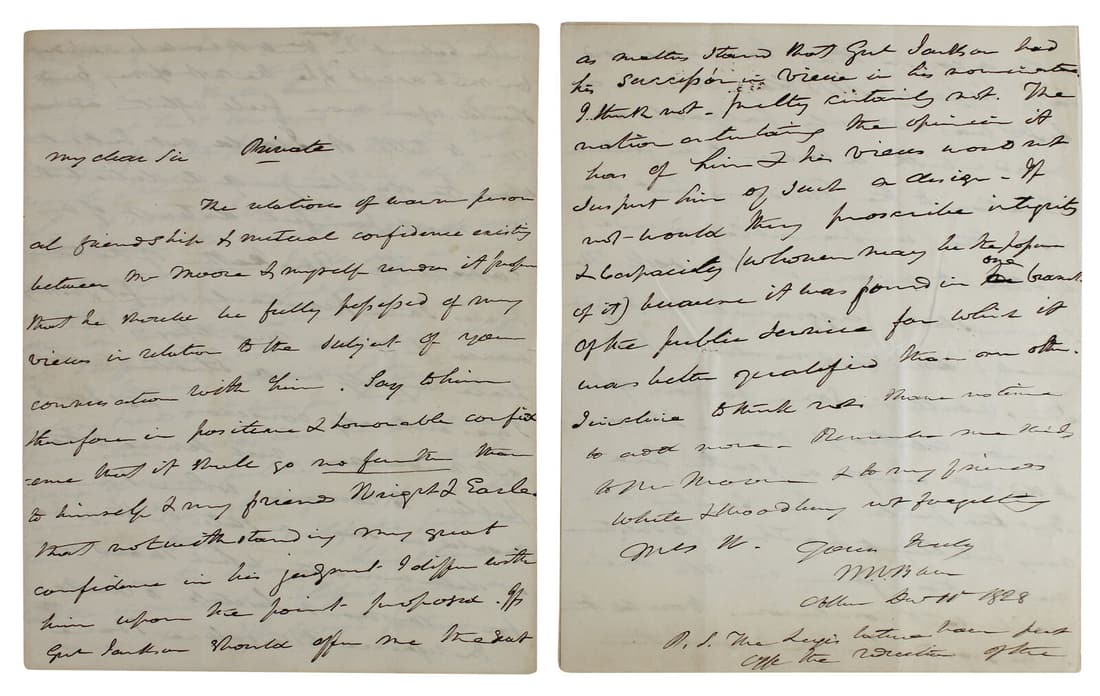 my dear Sir Private
The relations of warm person
al friendship & mutual confidence existing
between Mr Moore & myself renders it proper
that he should be fully possessed of my
views in relation to the subject of your
conversation with him. Say to him
therefore in positive & honorable confid
ence that it shall go no further than
to himself & my friends Wright & Earle
that notwithstanding my great
confidence in his judgment I differ with
him upon the point proposed. If
Genl Jackson should offer me the
as matters stand that Genl Jackson had
his successor in view in his nominations
I think not - pretty certainly not. The
nation entertaining the opinion it
has of him & his views would not
suspect him of such a design - If
not would they proscribe integrity
& capacity (whoever may be the
of it) because it was found in one branch
of the public service for which it
was better qualified than one other.
I incline to think not. I have not time
to add more. Remember me kindly
to Mr Moore & to my friends
White & Woodbury not forgetting
Mrs W. Yours truly
M V Buren
1828
P.S. The Legislature have put
off the election of the